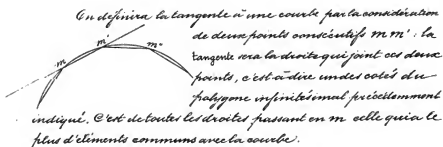 On définira la tangente à une courbe par la considération
de deux points consécutifs m m' : la
tangente sera la droite qui joint ces deux
points, c'est-à-dire un des cotés du
polygone infinitésimal précédemment
indiqué. C'est de toutes les droites passant en m celle qui a le
plus d'éléments communs avec la courbe.
m m' m"